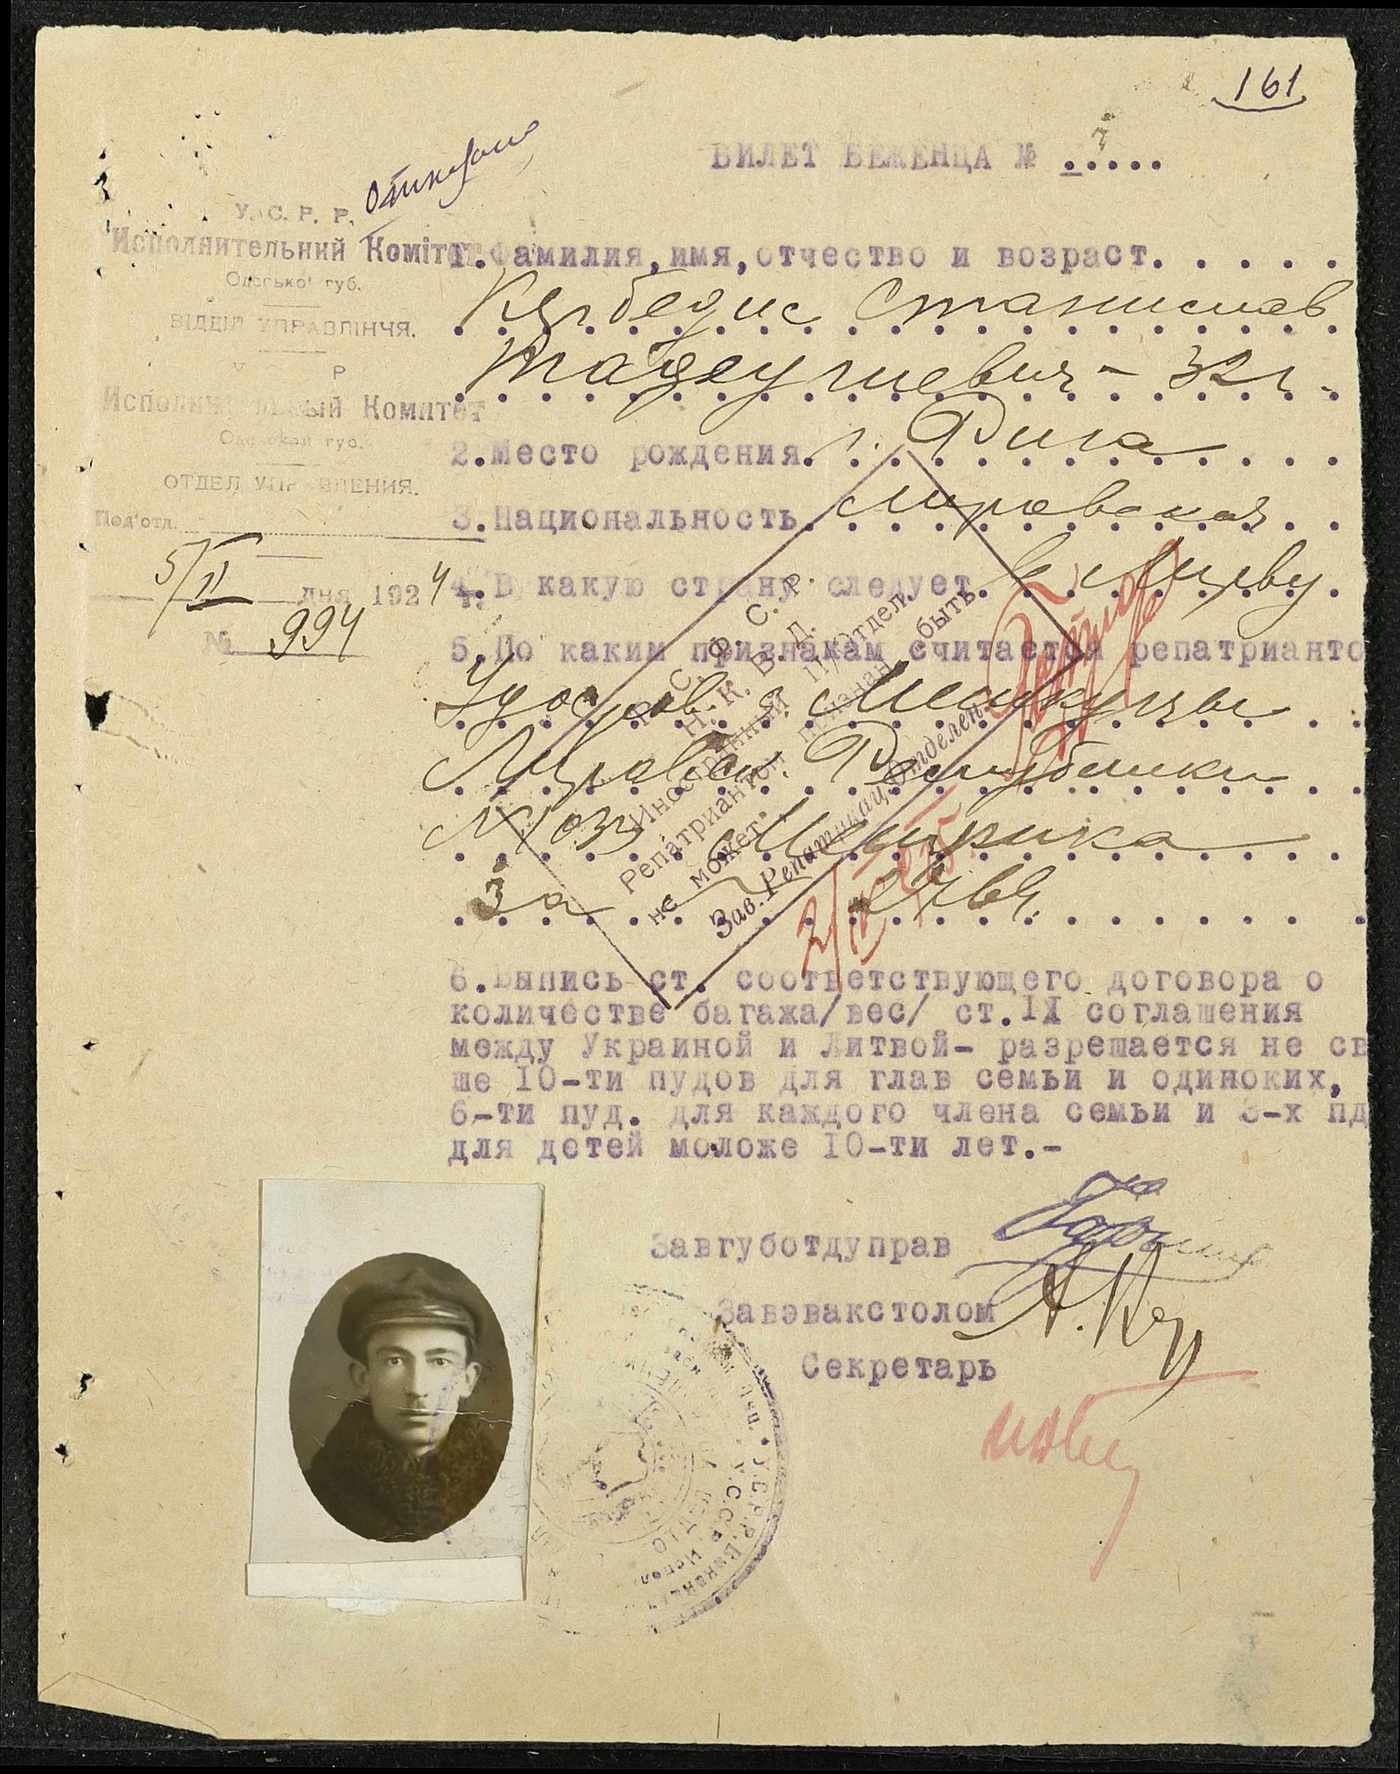 161
БИЛЕТ БЕЖЕНЦА №
У. С. Р. Р.
Исполнительний Комітет
Одеської губ.
ВІДДІЛ УПРАВЛІННЯ.
Исполнительный Комитет
Одесской губ.
ОТДЕЛ УПРАВЛЕНИЯ.
Под'отд.
5/II дня 1924
№ 994
1.Фамилия,имя,отчество и возраст.
Кербедис Станислав
Тадеушевич - 32 г.
2.Место рождения. г. Рига
3.Национальность. литовская
4.В какую страну следует. в Литву.
5.По каким признакам считается репатрианто
Удостов. Миссии
Литовск. Республики
Метрика
за № 2764.
Р. С. Ф. С. Р.
Н. К. В. Д.
Иностранный П/Отдел.
Репатриантом признан быть
не может.
Зав. Репатриац. Отделен.
6.Выпись ст. соответствующего договора о
количестве багажа/вес/ ст.IX соглашения
между Украиной и Литвой- разрешается не св
ше 10-ти пудов для глав семьи и одиноких,
6-ти пуд. для каждого члена семьи и 3-х пд
для детей моложе 10-ти лет.-
Завгуботдуправ
Завэвакстолом
Секретарь